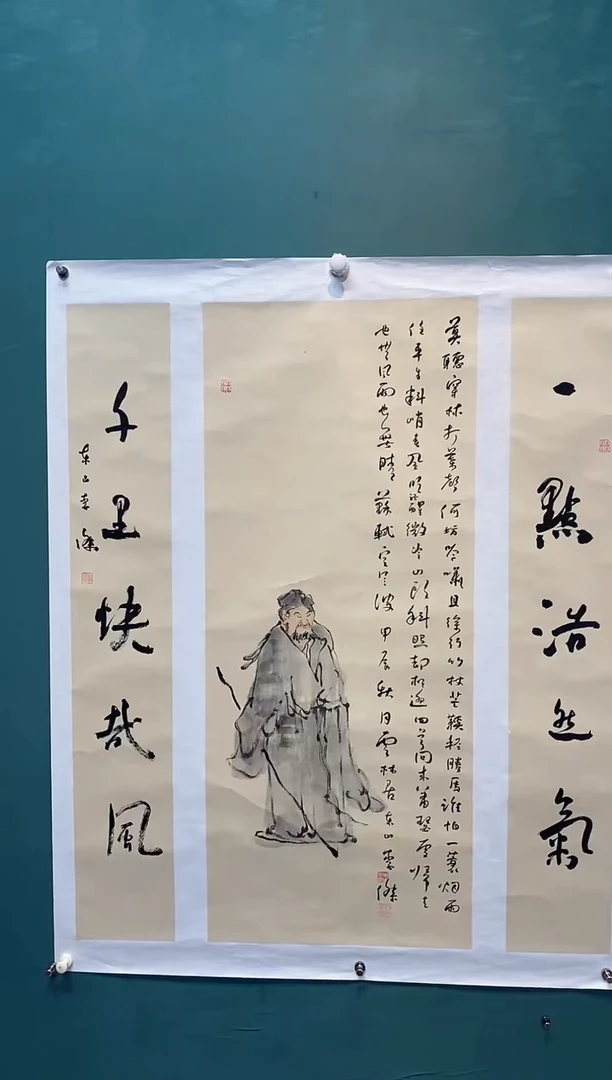 一點浩然氣
莫聽穿林打葉聲何妨吟嘯且徐行竹杖芒鞵輕勝馬誰怕一蓑烟雨
任平生料峭春風吹醒微冷山頭斜照却相迎回首向来蕭瑟處歸去
也無風雨也無晴 蘇軾定風波 甲辰秋月雲林居东山李傑
千里快哉風
东山李傑